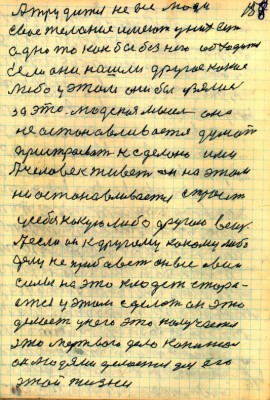 А трудится не все люди 158
свое желание имеют у них есть
одно то как бы без него обходится
Если они нашли другое какое
либо у этом они бы взялись
за это. людская мысль она
не останавливается думать
пристраивать к сделать ими
А человек живет он на этом
не останавливается строит
у себя какую либо другую вещь.
А если он к другому какому либо
делу не прибавет он все свои
силы на это кладет стара-
ется у этом сделать он это
делает у него это получается
это мертвого дело капитал
он людями делается для его
этой жизни